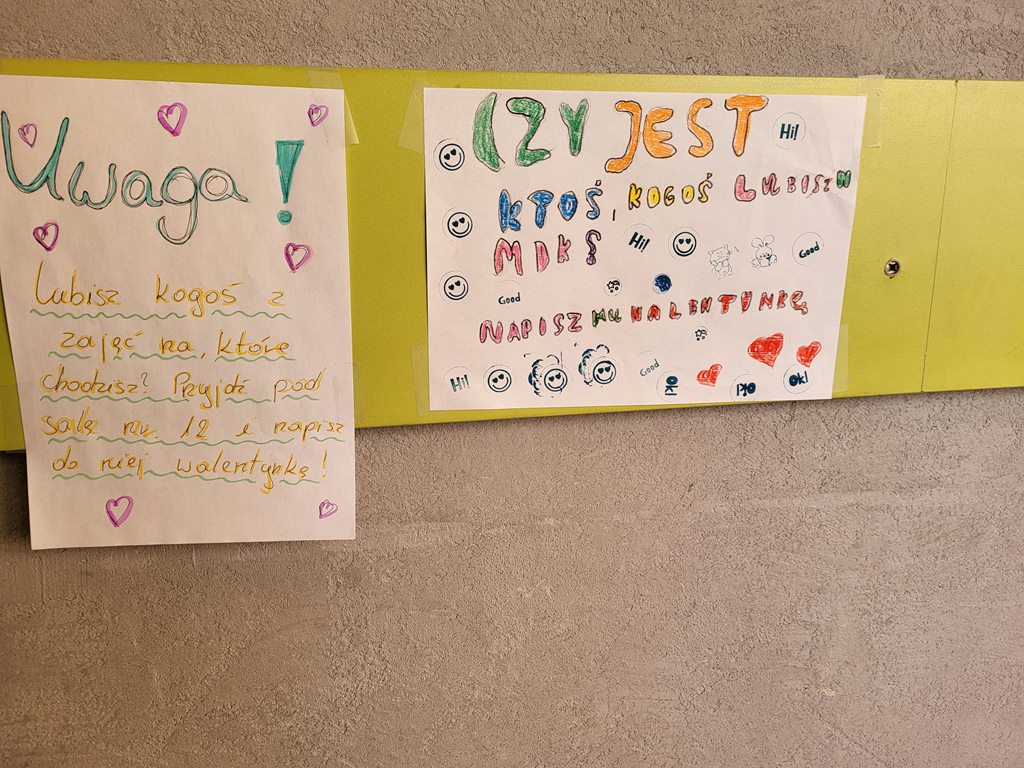 Uwaga!
Lubisz kogoś z
zajęć na, które
chodzisz? Przyjdź pod
salę nr. 12 i napisz
do niej walentynkę!
CZY JEST
Hi!
KTOŚ, KOGOŚ LUBISZ W
MDKŚ
Hi!
Good
Good
NAPISZ MU WALENTYNKĘ
Hi!
Good
Ok!
Ok!
Ok!